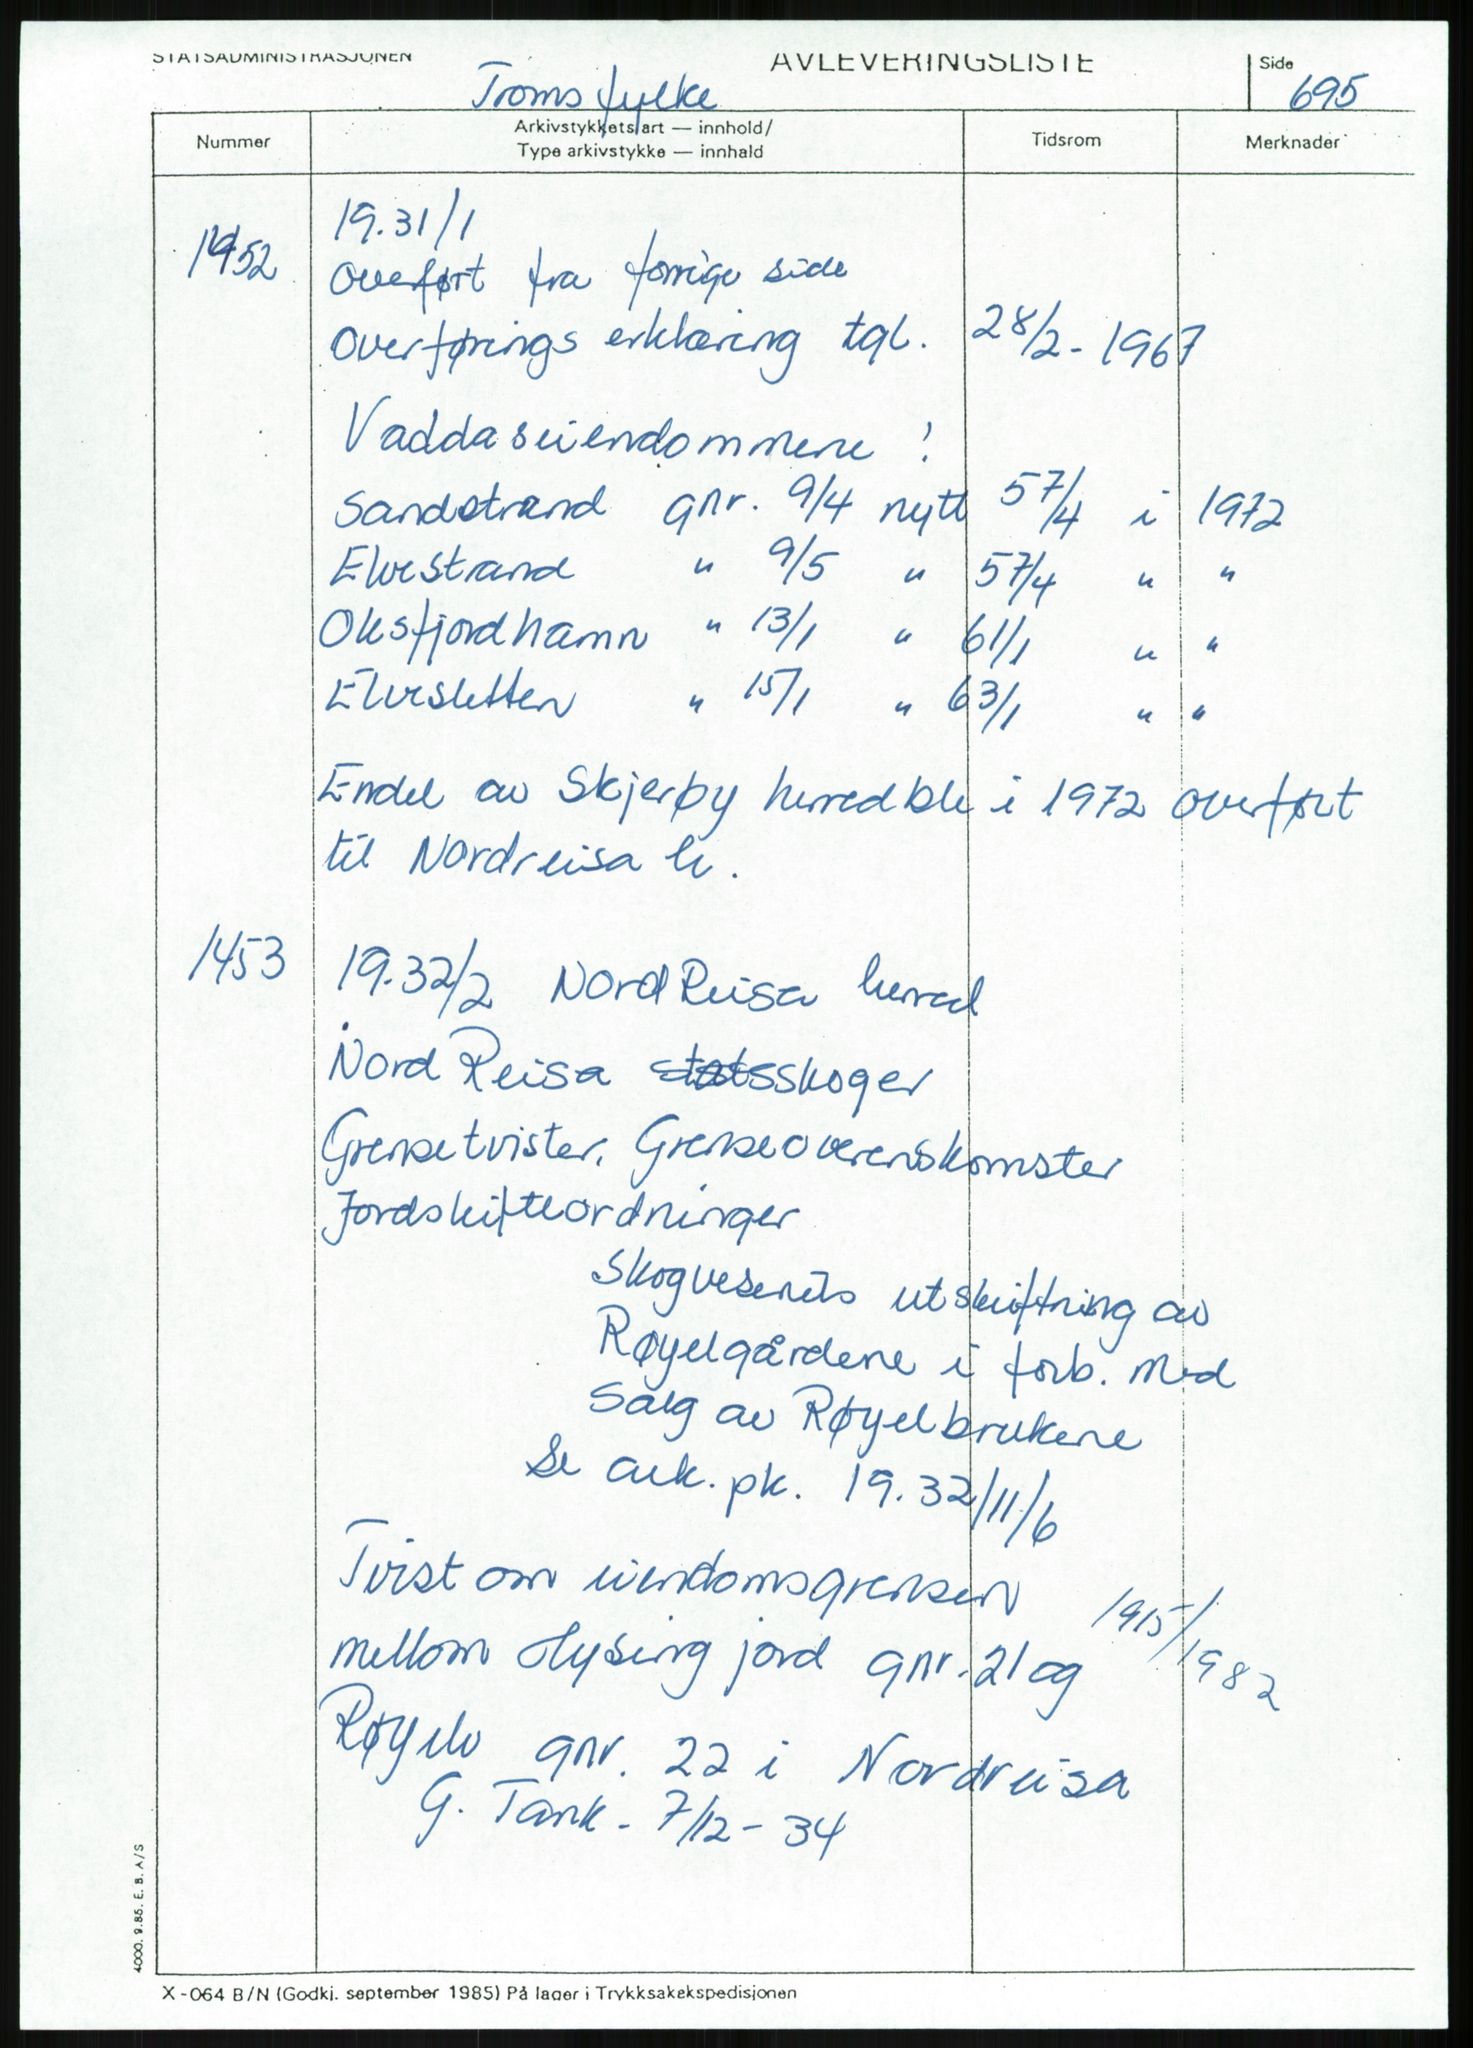 STATSADMINISTRASJONEN AVLEVERINGSLISTE Side
Troms fylke 695
Nummer Arkivstykkets art — innhold/ Tidsrom Merknader
Type arkivstykke — innhald
19.31/1
1452 Overført fra forrige side
Overførings erklæring tgl. 28/2 - 1967
Vaddaseiendommene :
Sandstrand gnr. 9/4 nytt 57/4 i 1972
Elvestrand " 9/5 " 57/4 " "
Oksfjordhamn " 13/1 " 61/1 " "
Elvesletten " 15/1 " 63/1 " "
Endel av Skjerøy herred ble i 1972 overført
til Nordreisa h.
1453 19.32/2 Nord Reisa herred
Nord Reisa statsskoger
Grensetvister, Grenseoverenskomster
Jordskifteordninger
Skogvesenets utskiftning av
Røyelgårdene i forb. med
Salg av Røyelbrukene
Se ark. pk. 19.32/11/6
Tvist om eiendomsgrensen 1915/1982
mellom Hysing jord gnr. 21 og
Røyelv gnr. 22 i Nordreisa
G. Tank - 7/12 - 34
4000. 9.85. E. B. A/S
X-064 B/N (Godkj. september 1985) På lager i Trykksakekspedisjonen